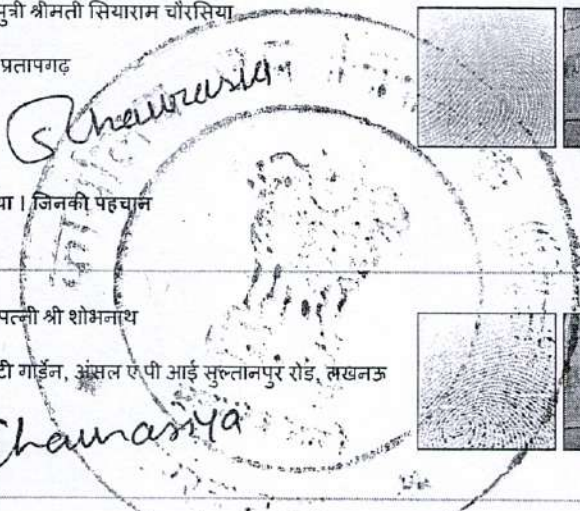 पुत्री श्रीमती सियाराम चौरसिया
प्रतापगढ़
SChaurasia
या | जिनकी पहचान
पत्नी श्री शोभनाथ
टी गार्डेन, अंसल ए पी आई सुल्तानपुर रोड, लखनऊ
Chaurasiya